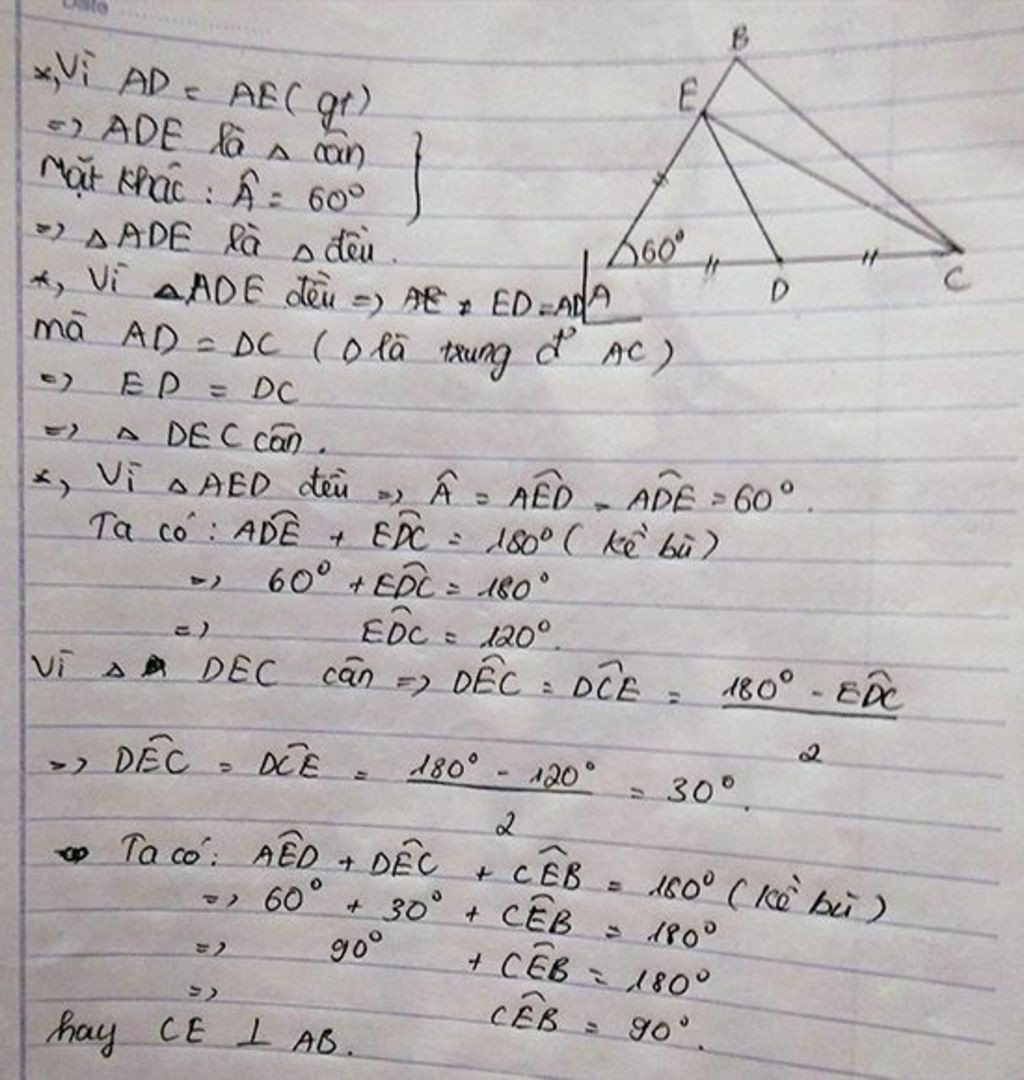 Date
*, Vì AD = AE (gt)
=> ADE là △ cân
Mặt khác : Â = 60°
=> △ ADE là △ đều.
*, Vì △ADE đều => AE = ED = AD
mà AD = DC ( D là trung đ' AC )
=> ED = DC
=> △ DEC cân.
*, Vì △AED đều => Â = AÊD = AD̂E = 60°.
Ta có : AD̂E + ED̂C = 180° ( kề bù )
=> 60° + ED̂C = 180°
=> ED̂C = 120°.
Vì △ DEC cân => DÊC = DĈE = (180° - ED̂C)/2
=> DÊC = DĈE = (180° - 120°)/2 = 30°.
Ta có : AÊD + DÊC + CÊB = 180° ( kề bù )
=> 60° + 30° + CÊB = 180°
=> 90° + CÊB = 180°
=> CÊB = 90°.
hay CE ⊥ AB.
B
E
60°
A
D
C